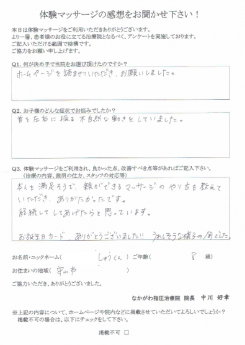 体験マッサージの感想をお聞かせ下さい！
本日は体験マッサージをご利用いただきありがとうございます。
より一層、患者様のお役に立てる治療院となるべく、アンケートを実施しております。
ご記入いただける範囲で結構です。
ご協力をお願い申し上げます。
Q1. 何が決め手で当院をお選び頂けたのですか？
ホームページを読ませていただき、お願いしました。
Q2. お子様のどんな症状でお悩みでしたか？
首を左右に振る不自然な動きをしていました。
Q3. 体験マッサージをご利用され、良かった点、改善すべき点等があればご記入下さい。
(治療の内容、施術の仕方、スタッフの対応等)
本人も満足そうで、親ができるマッサージのやり方を教えて
いただき、ありがたかったです。
継続してしてあげたらと思っています。
お誕生日カード ありがとうございました!!
お名前・ニックネーム( しゅうくん ) ご年齢( 8 歳)
お住まいの地域(
ご協力いただき、ありがとうございました。
なかがわ指圧治療院 院長 中川 好章
※上記の内容について、ホームページや院内などに掲載させていただいてよろしいでしょうか？
掲載不可の場合は、以下にチェックをして下さい。
掲載不可 □